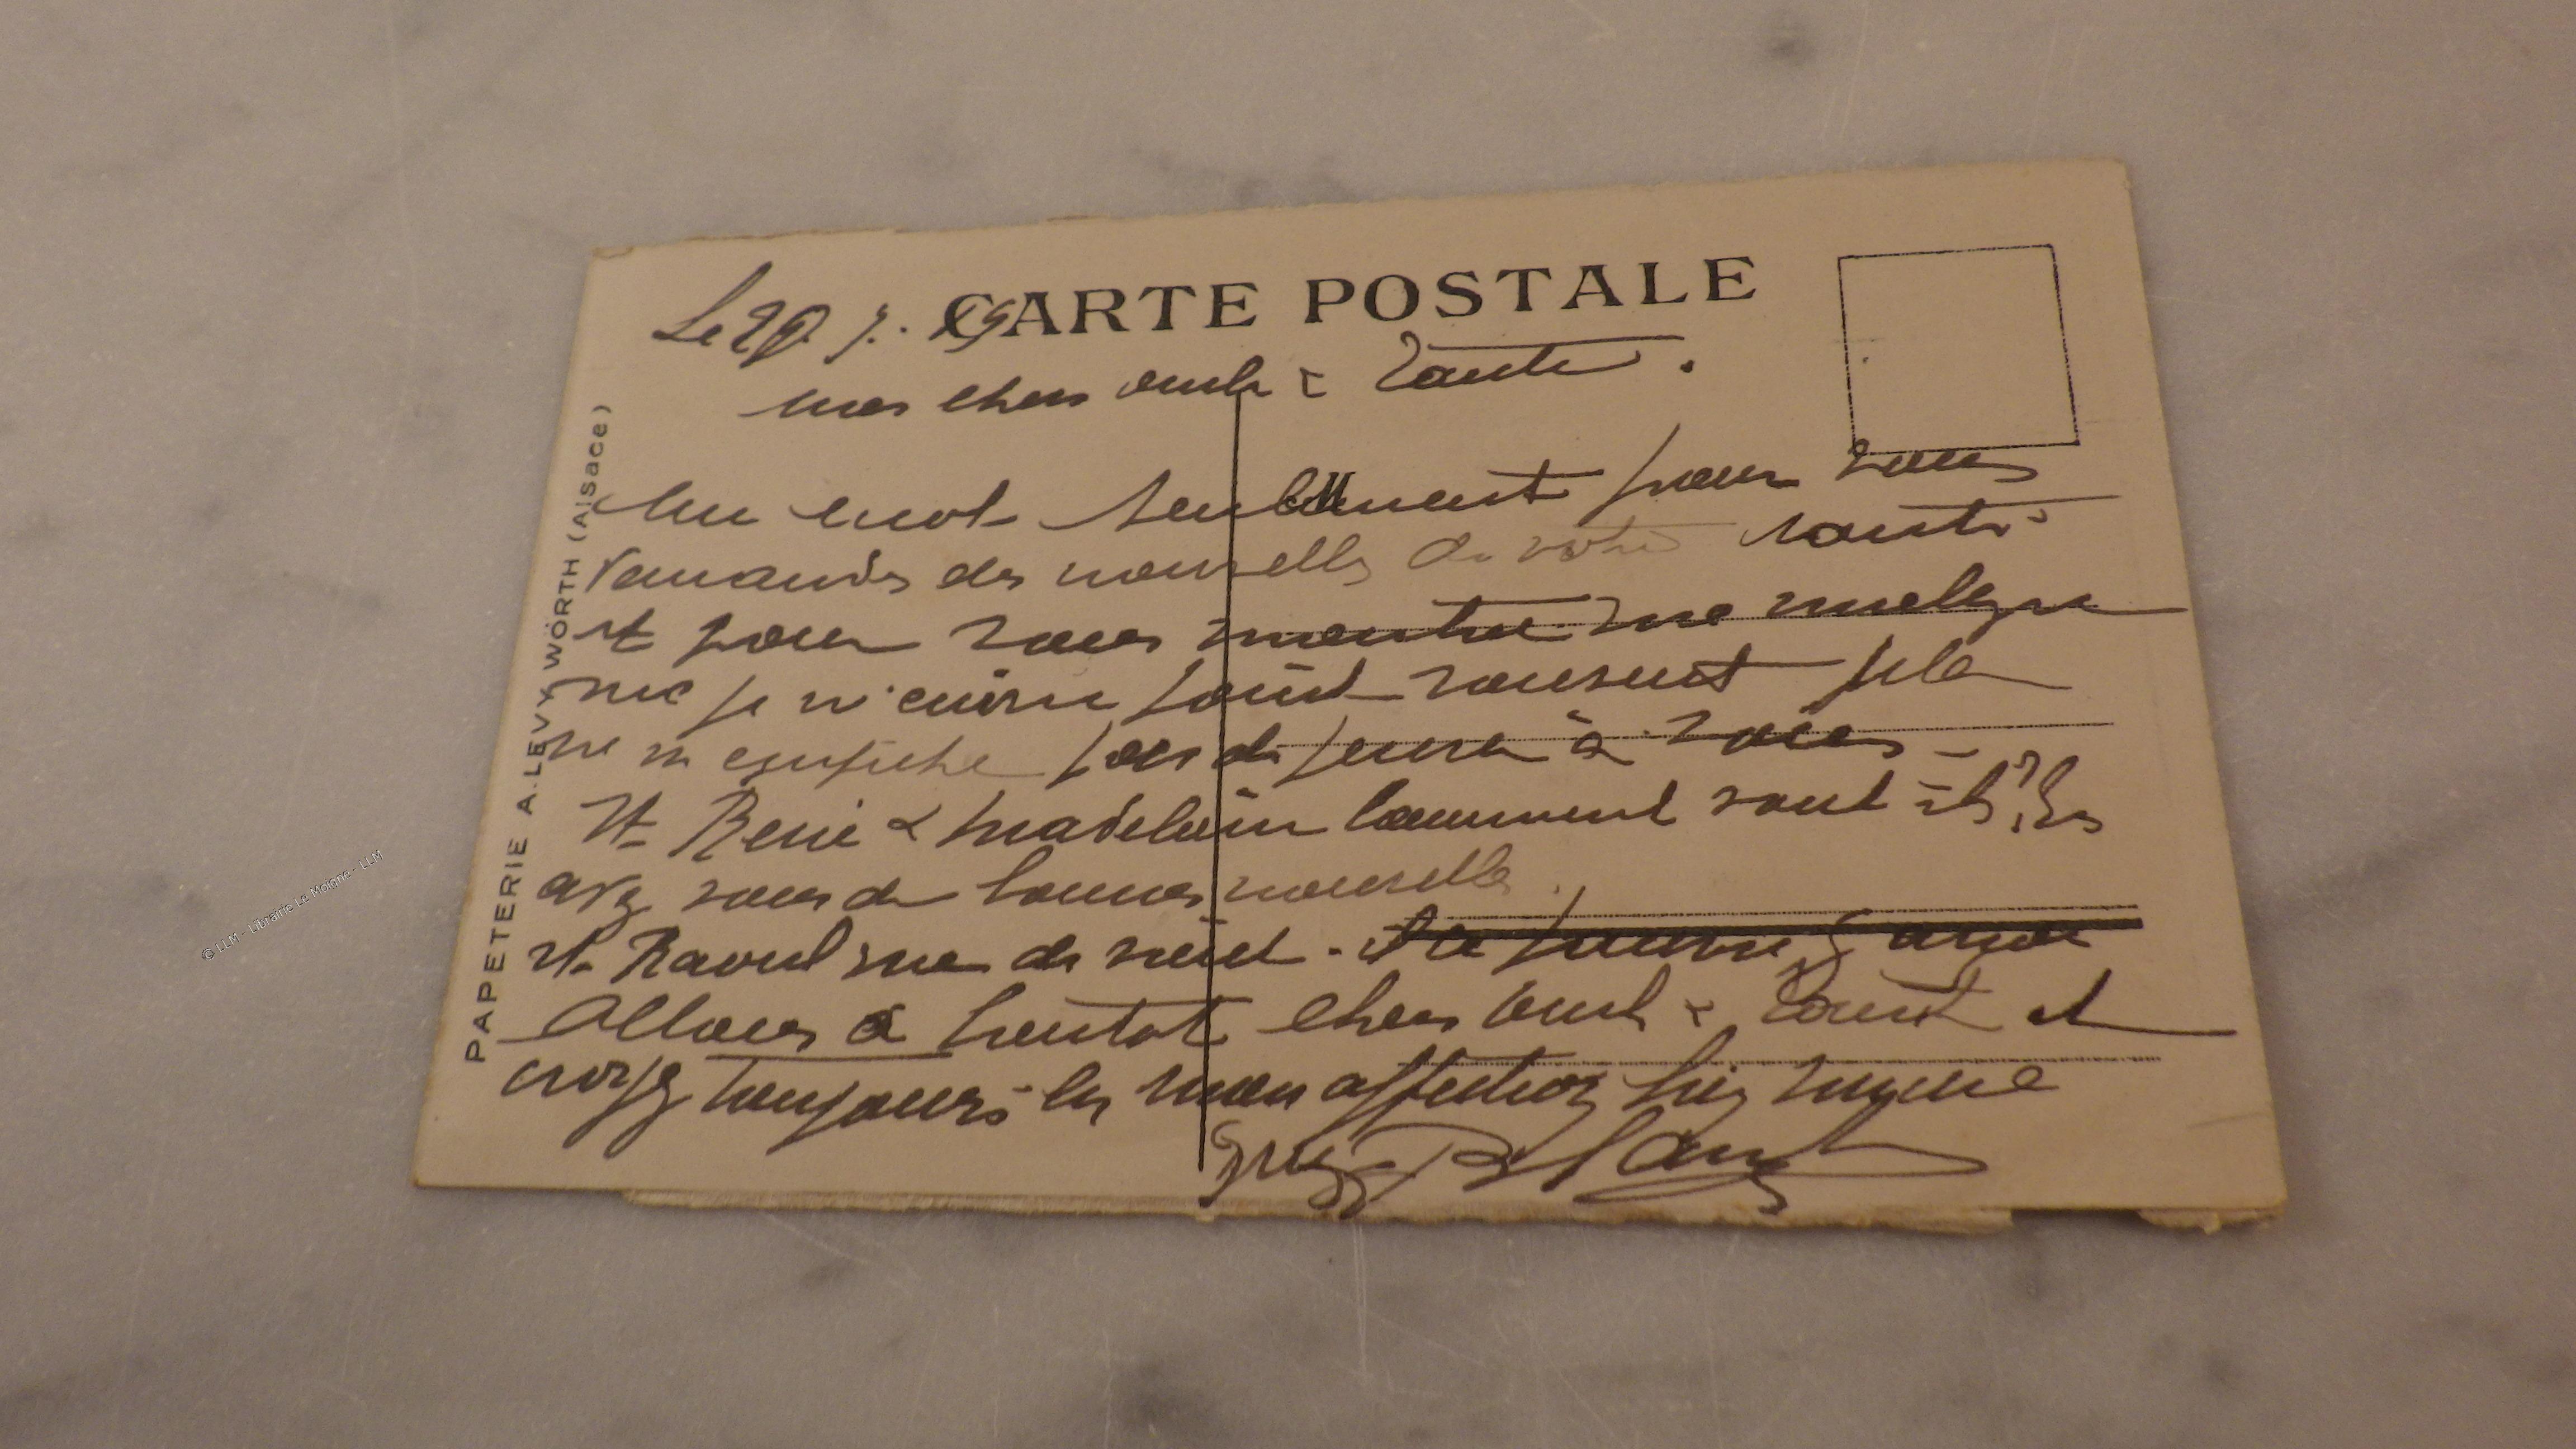 CARTE POSTALE
Le 29. 7. 19
mes chers oncle & Tante.
Un mot seulement pour vous
demander des nouvelles de votre santé
et pour vous montrer que malgré
que je n'écrive pas souvent cela
ne m'empêche pas de penser à vous -
Et René & Madeleine comment vont-ils ?
avez vous de bonnes nouvelles.
et Raoul
Allons à bientot chers oncle & Tante et
croyez toujours à mon affection sincère
PAPETERIE A. LEVY WÖRTH (Alsace)
© LLM - Librairie Le Moigne - LLM